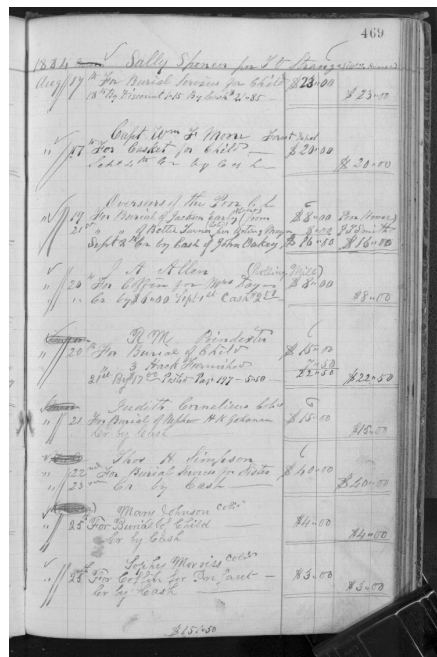 469
1884 Sally Spencer for
Aug 17th For Burial Services for Child $23.00
18th By Discount 1.15 By Cash 21.85 $23.00
Capt. Wm F Moore
" 17th For Casket for Child $20.00
Sept 4th Cr by Cash $20.00
Overseers of the Poor
" 19 For Burial of Jackson $8.00
21st " of Bettie 8.00
Sept 8th Cr by Cash of John Oakey $16.00 $16.00
J. A. Allen (Rolling Mill)
" 20th For Coffin for Mrs Day $8.00
" Cr by $6.00 Sept 1st Cash 2.00 $8.00
R M Poindexter
" 20th For Burial of Child $15.00
3 Hack Furnished 7.50
21st By 17 Page 197 - 5.50 22.50 $22.50
Judith Cornelious Cold
" 21 For Burial of Nephew H K Johnson $15.00
Cr. by Cash $15.00
Thos H. Simpson
" 22nd For Burial Services for Sister $40.00
" 23 Cr by Cash $40.00
Mary Johnson Cold
" 25th For Burial of Child $4.00
Cr by Cash $4.00
Sophy Morriss Cold
" 25th For Coffin for Infant $3.00
Cr by Cash $3.00
$151.50